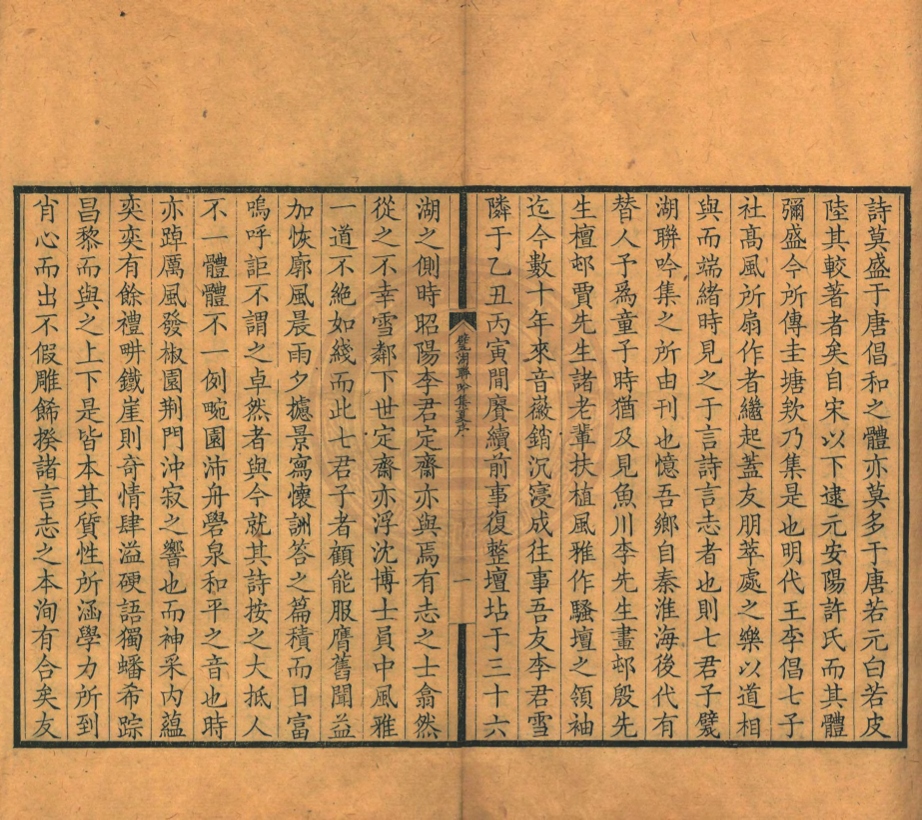 詩莫盛于唐倡和之體亦莫多于唐若元白若皮
陸其較著者矣自宋以下逮元安陽許氏而其體
彌盛今所傳圭塘欵乃集是也明代王李倡七子
社高風所扇作者繼起蓋友朋萃處之樂以道相
與而端緒時見之于言詩言志者也則七君子甓
湖聯吟集之所由刊也憶吾鄉自秦淮海後代有
替人予爲童子時猶及見魚川李先生畫邨殷先
生檀邨賈先生諸老輩扶植風雅作騷壇之領袖
迄今數十年來音徽銷沉寖成往事吾友李君雪
隣于乙丑丙寅閒賡續前事復整壇坫于三十六
甓湖聯吟集 序
一
湖之側時昭陽李君定齋亦與焉有志之士翕然
從之不幸雪鄰下世定齋亦浮沈博士員中風雅
一道不絕如綫而此七君子者顧能服膺舊聞益
加恢廓風晨雨夕攄景寫懷詶答之篇積而日富
嗚呼詎不謂之卓然者與今就其詩按之大抵人
不一體體不一例畹園沛舟礐泉和平之音也時
亦踔厲風發椒園荆門沖寂之響也而神采內蘊
奕奕有餘禮畊鐵崖則奇情肆溢硬語獨蟠希踪
昌黎而與之上下是皆本其質性所涵學力所到
肖心而出不假雕飾揆諸言志之本洵有合矣友